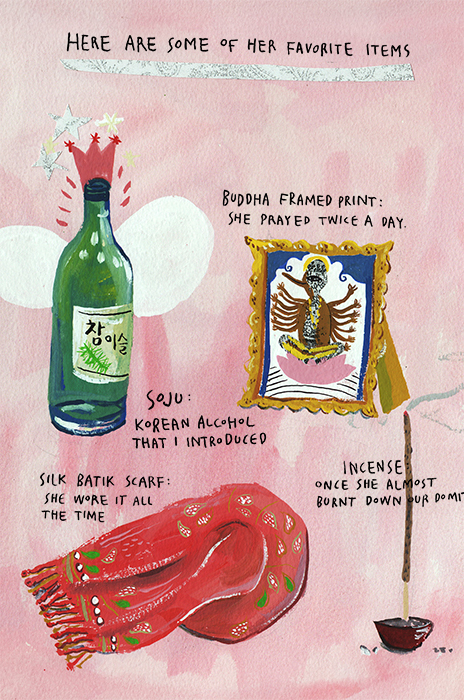 HERE ARE SOME OF HER FAVORITE ITEMS
BUDDHA FRAMED PRINT:
SHE PRAYED TWICE A DAY.
참이슬
SOJU:
KOREAN ALCOHOL
THAT I INTRODUCED
INCENSE:
ONCE SHE ALMOST
BURNT DOWN OUR DOMIT
SILK BATIK SCARF:
SHE WORE IT ALL
THE TIME